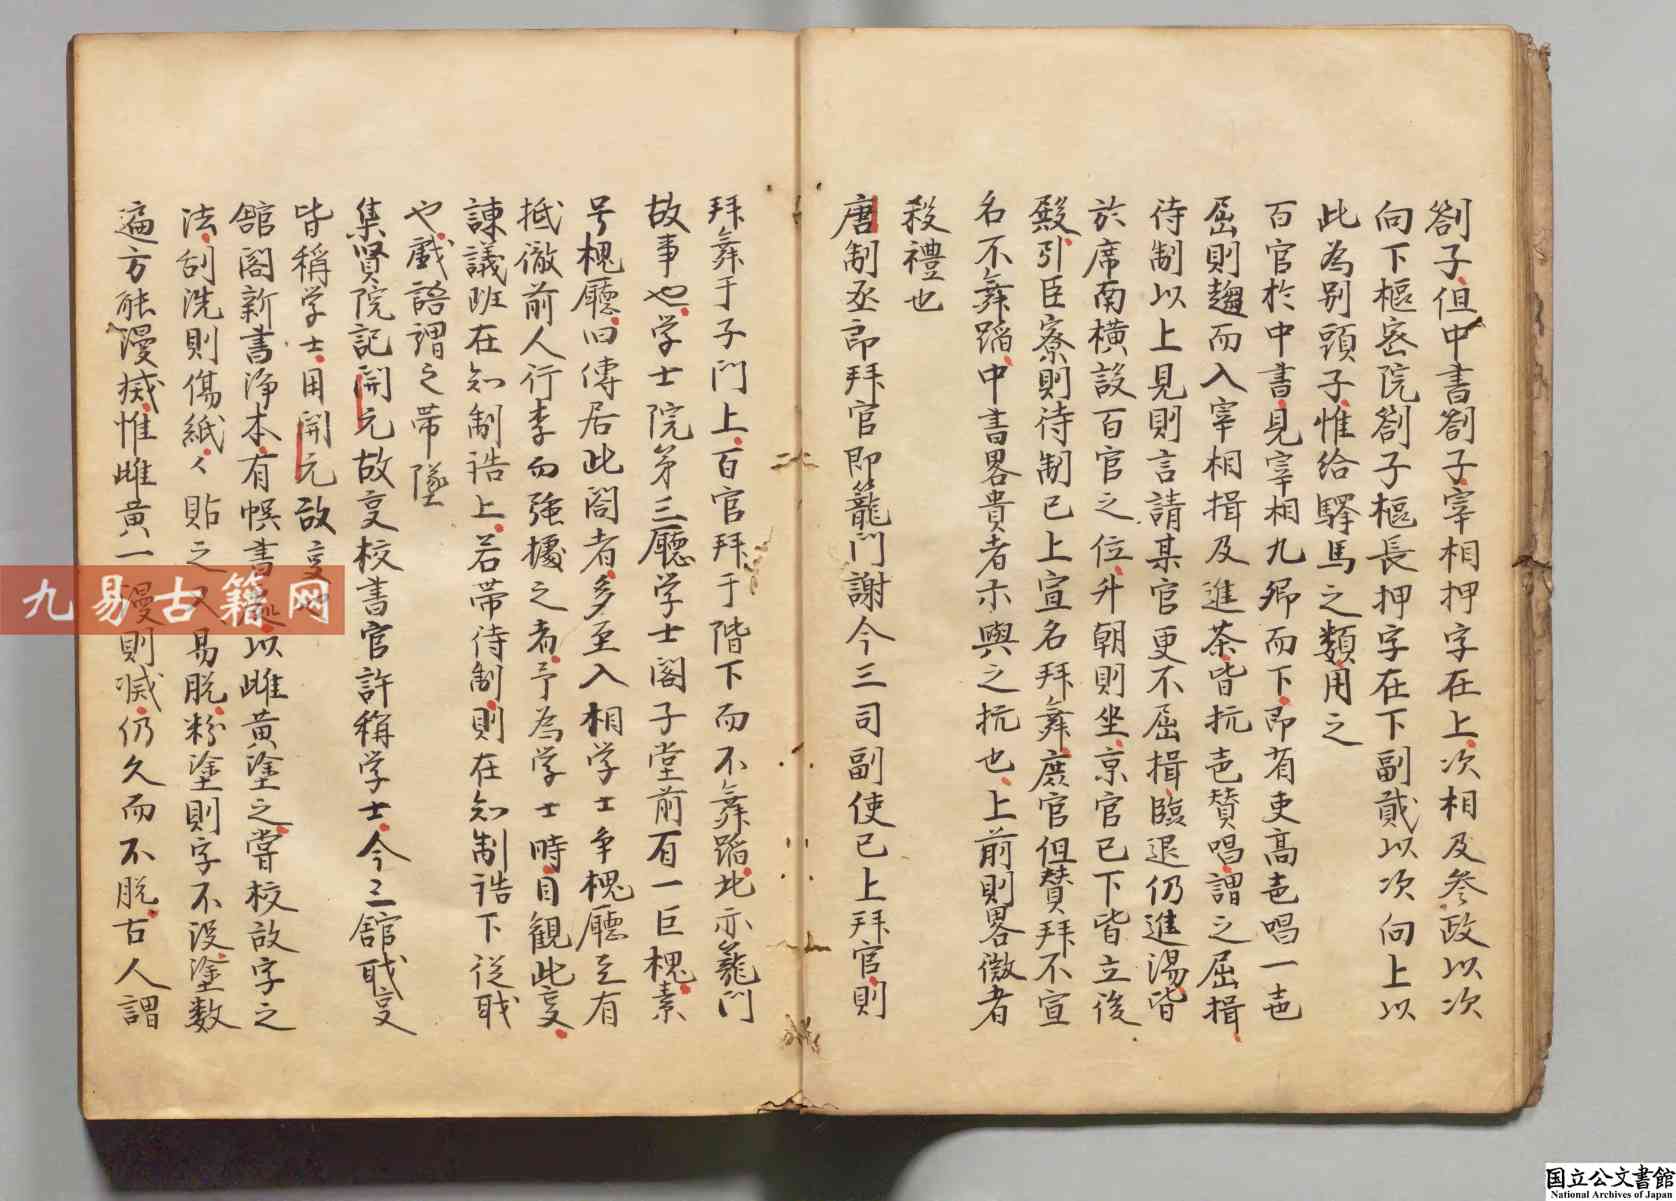 劄子但中書劄子宰相押字在上次相及叅政以次
向下樞密院劄子樞長押字在下副貳以次向上以
此為別頭子惟給驛馬之類用之
百官於中書見宰相九卿而下即省吏高声唱一声
屈則趨而入宰相揖及進茶皆抗声賛唱謂之屈揖
待制以上見則言請某官更不屈揖臨退仍進湯皆
於席南橫設百官之位升朝則坐京官已下皆立後
殿引臣寮則待制已上宣名拜舞庶官但賛拜不宣
名不舞蹈中書畧貴者示與之抗也上前則畧微者
殺禮也
唐制丞郎拜官即籠門謝今三司副使已上拜官則
拜舞于子門上百官拜于階下而不舞蹈此亦籠門
故事也学士院第三廳学士閣子堂前有一巨槐素
号槐廳旧傳居此閣者多至入相学士争槐廳至有
抵徹前人行李而強據之者予為学士時目観此叓
諌議班在知制誥上若带待制則在知制誥下従职
也戱語謂之带墜
集賢院記開元故叓校書官許稱学士今三舘职叓
皆稱学士用開元故叓
舘閣新書浄本有悞書處以雌黄塗之甞校改字之
法刮洗則傷紙々貼之又易脱粉塗則字不没塗数
遍方能漫㓕惟雌黄一漫則㓕仍久而不脱古人謂
九易古籍网
国立公文書館
National Archives of Japan